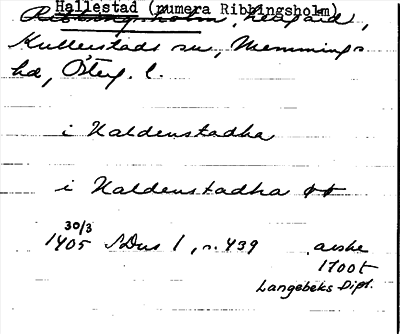 Hallestad (numera Ribbingsholm)
Ribbingsholm, herrgård,
Kullerstads sn, Memmings
hd, Österg. l.
i Haldenstadha
i Haldenstadha
30/3
1405 SDns 1, s. 439 avskr
1700t
Langebeks Dipl.